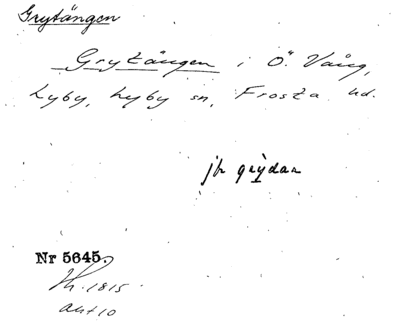 Grytängen
Grytängen i Ö. Vång,
Lyby, Lyby sn, Frosta hd.
jfr grydan
Nr 5645.
Th. 1815
akt 10